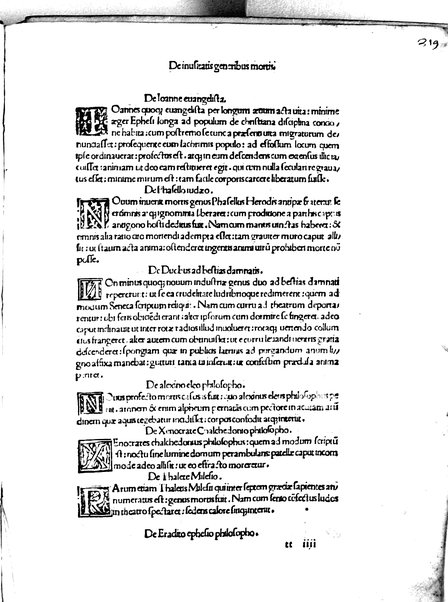 219
De inusitatis generibus mortis.
De Ioanne euangelista.
IOannes quoq; euangelista per longum æuum acta uita: minime
æger Ephesi longa ad populum de christiana disciplina concio
ne habita: cum postremo se tunc a præsenti uita migraturum de
nunciasset: prosequente eum lachrimis populo: ad effossum locum quem
ipse ordinauerat: profectus est. atq; in eum descendens cum
cuisset: animam ut deo eam restitueret egit. qui cum nulla seculari
tus esset: minime mirum est: tam facile corporis carcere liberatum fuisse.
De Phasello iudæo.
NOuum inuenit mortis genus Phasellus Herodis antipæ
ærumnis atq; ignominia liberaret: cum proditione a parthis captus
antigono hosti deditus fuit. Nam cum manus uinctas haberet: &
omnis alia ratio ei moriendi adempta esset: tam grauiter muro caput
sit: ut statim acta anima: ostenderet ingentis animi uiro prohiberi morte nō
posse.
De Duobus ad bestias damnatis.
NOn minus quoq; nouum industriæ genus duo ad bestias damnati
repererunt: ut se ea crudelitate ludibrioque redimerent: quem ad
modum Seneca scriptum reliqt. Nam cum curru ad theatrum deporta
rentur: ubi feris obiiciendi erant: alter ipsorum cum dormire se fingeret. adeo
caput inclinauit ut inter rotæ radios illud inuolueret: rotaq; uertendo collum
eius frangeret. alter autem cum leuandi uentris gratia
descenderet: spongiam quæ in publicis latrinis ad purgandum anum lig
no affixa manebat: gutturi tanta ui inseruit: ut confestim præclusa anima
periret.
De alexino eleo philosopho.
profecto mortis casus is fuit: quo alexinus eleus philosophus pe
riit. amnem & enim alpheum pernatans cum pectore in acutam arū
dinem quæ aquis tegebatur incidisset: corpus confodit atq; interiit.
De Xenocrate Chalchedonio philosopho.
XEnocrates chalchedonius philosophus: quem ad modum scriptū
est: noctu sine lumine domum perambulans: patellæ caput incom
mode adeo allisit: ut eo effracto moreretur.
De Thalete Milesio.
RArum etiam Thaletis Milesii qui inter septem græciæ sapientes an
numeratus est: genus mortis fuit. Nam cum senio cōfectus ludos
in theatro spectaret: sedens calore siq; interiit.
De Eraclito ephesio philosopho.
cc iiii